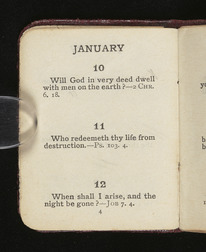 JANUARY
10
Will God in very deed dwell
with men on the earth?—2 CHR.
6. 18.
11
Who redeemeth thy life from
destruction.—Ps. 103. 4.
12
When shall I arise, and the
night be gone?—JOB 7. 4.
4